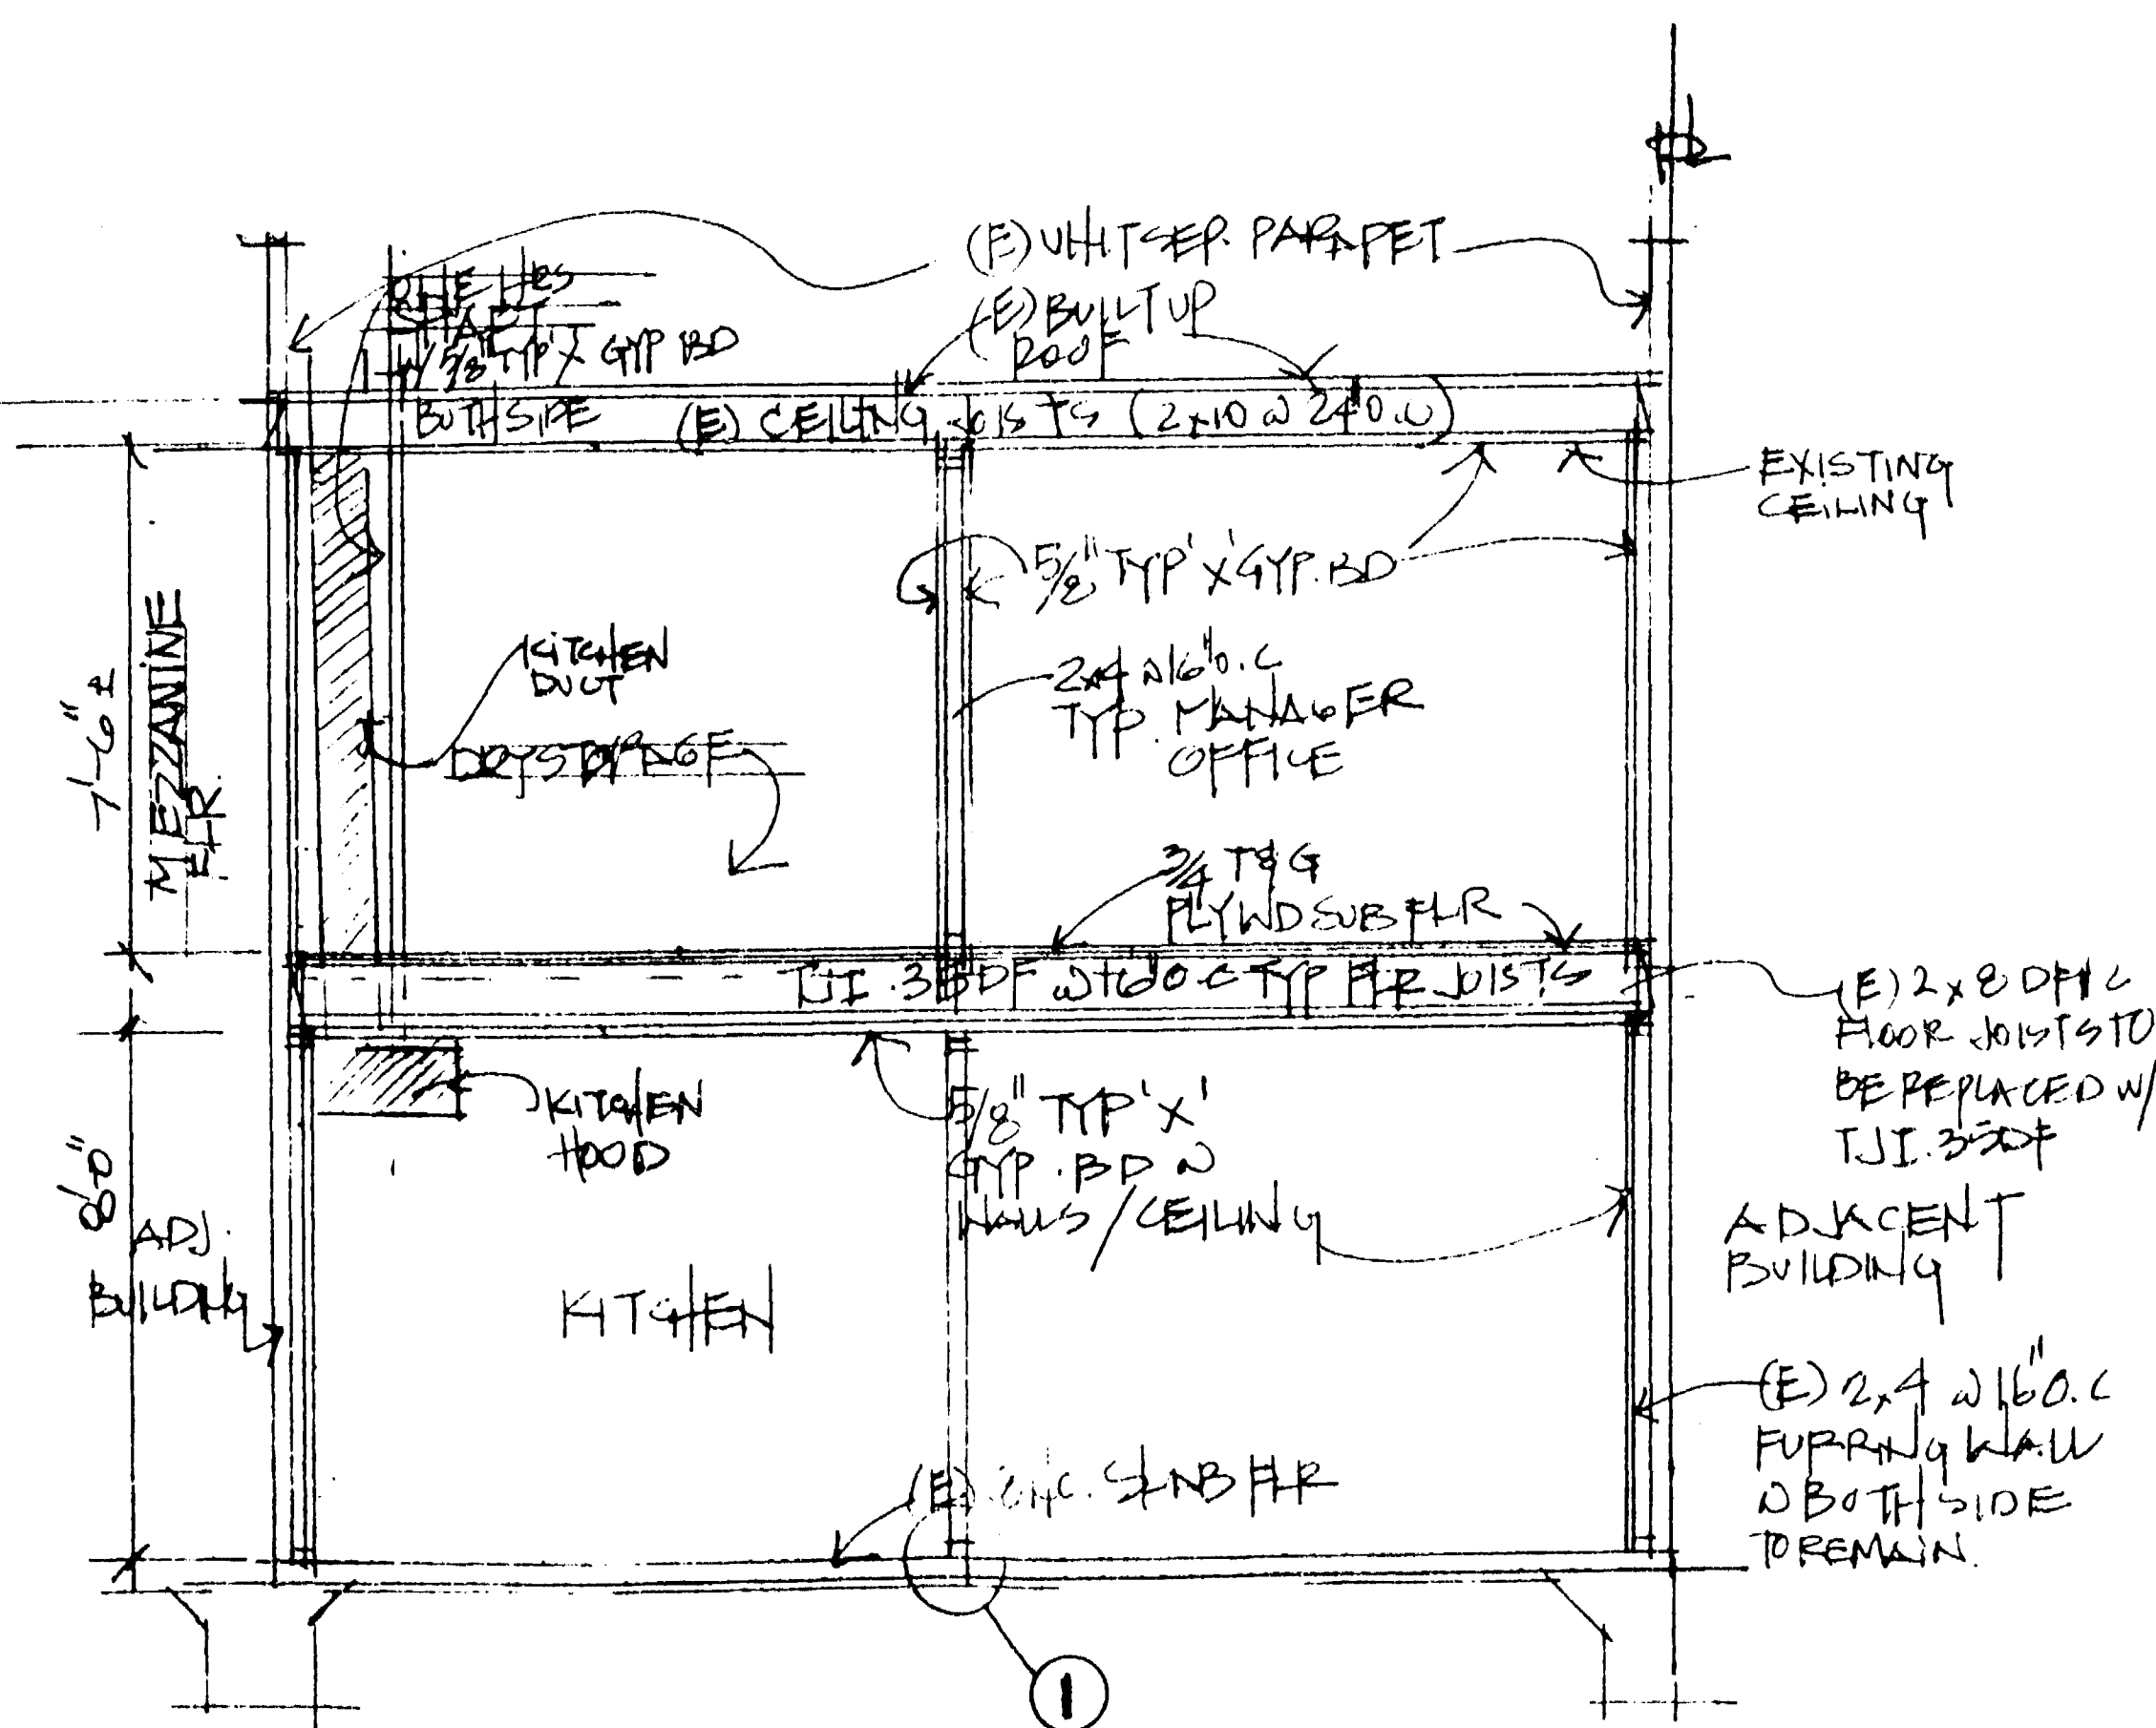 (E) UNIT SEP. PARAPET
(E) BUILT UP
ROOF
ONE HRS
SHAFT
W/ 5/8" TYP 'X' GYP BD
BOTH SIDE
(E) CEILING JOISTS (2x10 @ 24" O.C)
EXISTING
CEILING
5/8" TYP 'X' GYP. BD
KITCHEN
DUCT
DRY STORAGE
2x4 @ 16" O.C
TYP. MANAGER
OFFICE
7'-6" ±
MEZZANINE
FLR.
3/4 T&G
PLYWD SUB FLR
TJI .35DF @ 16" O.C TYP FLR JOISTS
(E) 2x8 DF
FLOOR JOISTS TO
BE REPLACED W/
TJI .35DF
KITCHEN
HOOD
5/8" TYP 'X'
GYP. BD @
WALLS / CEILING
8'-0"
ADJ.
BUILDING
KITCHEN
ADJACENT
BUILDING
(E) 2x4 @ 16" O.C
FURRING WALL
@ BOTH SIDE
TO REMAIN.
(E) SLAB FLR
1